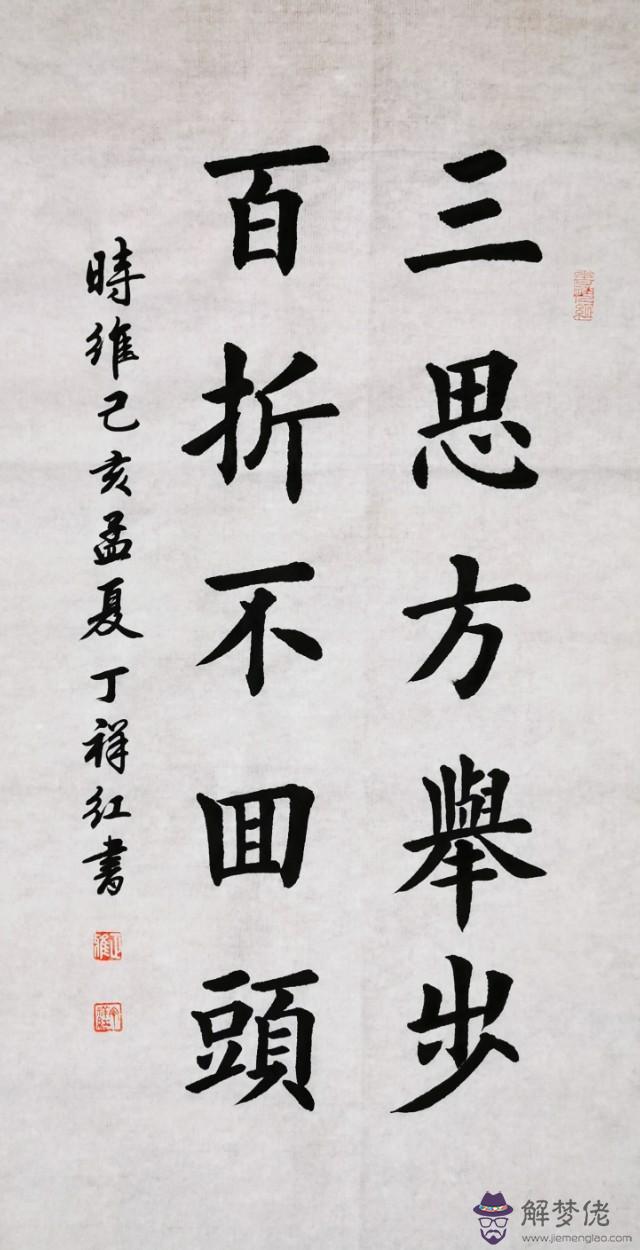 三思方舉步
百折不囬頭
時維己亥孟夏丁祥红書
解梦佬
www.jiemenglao.com